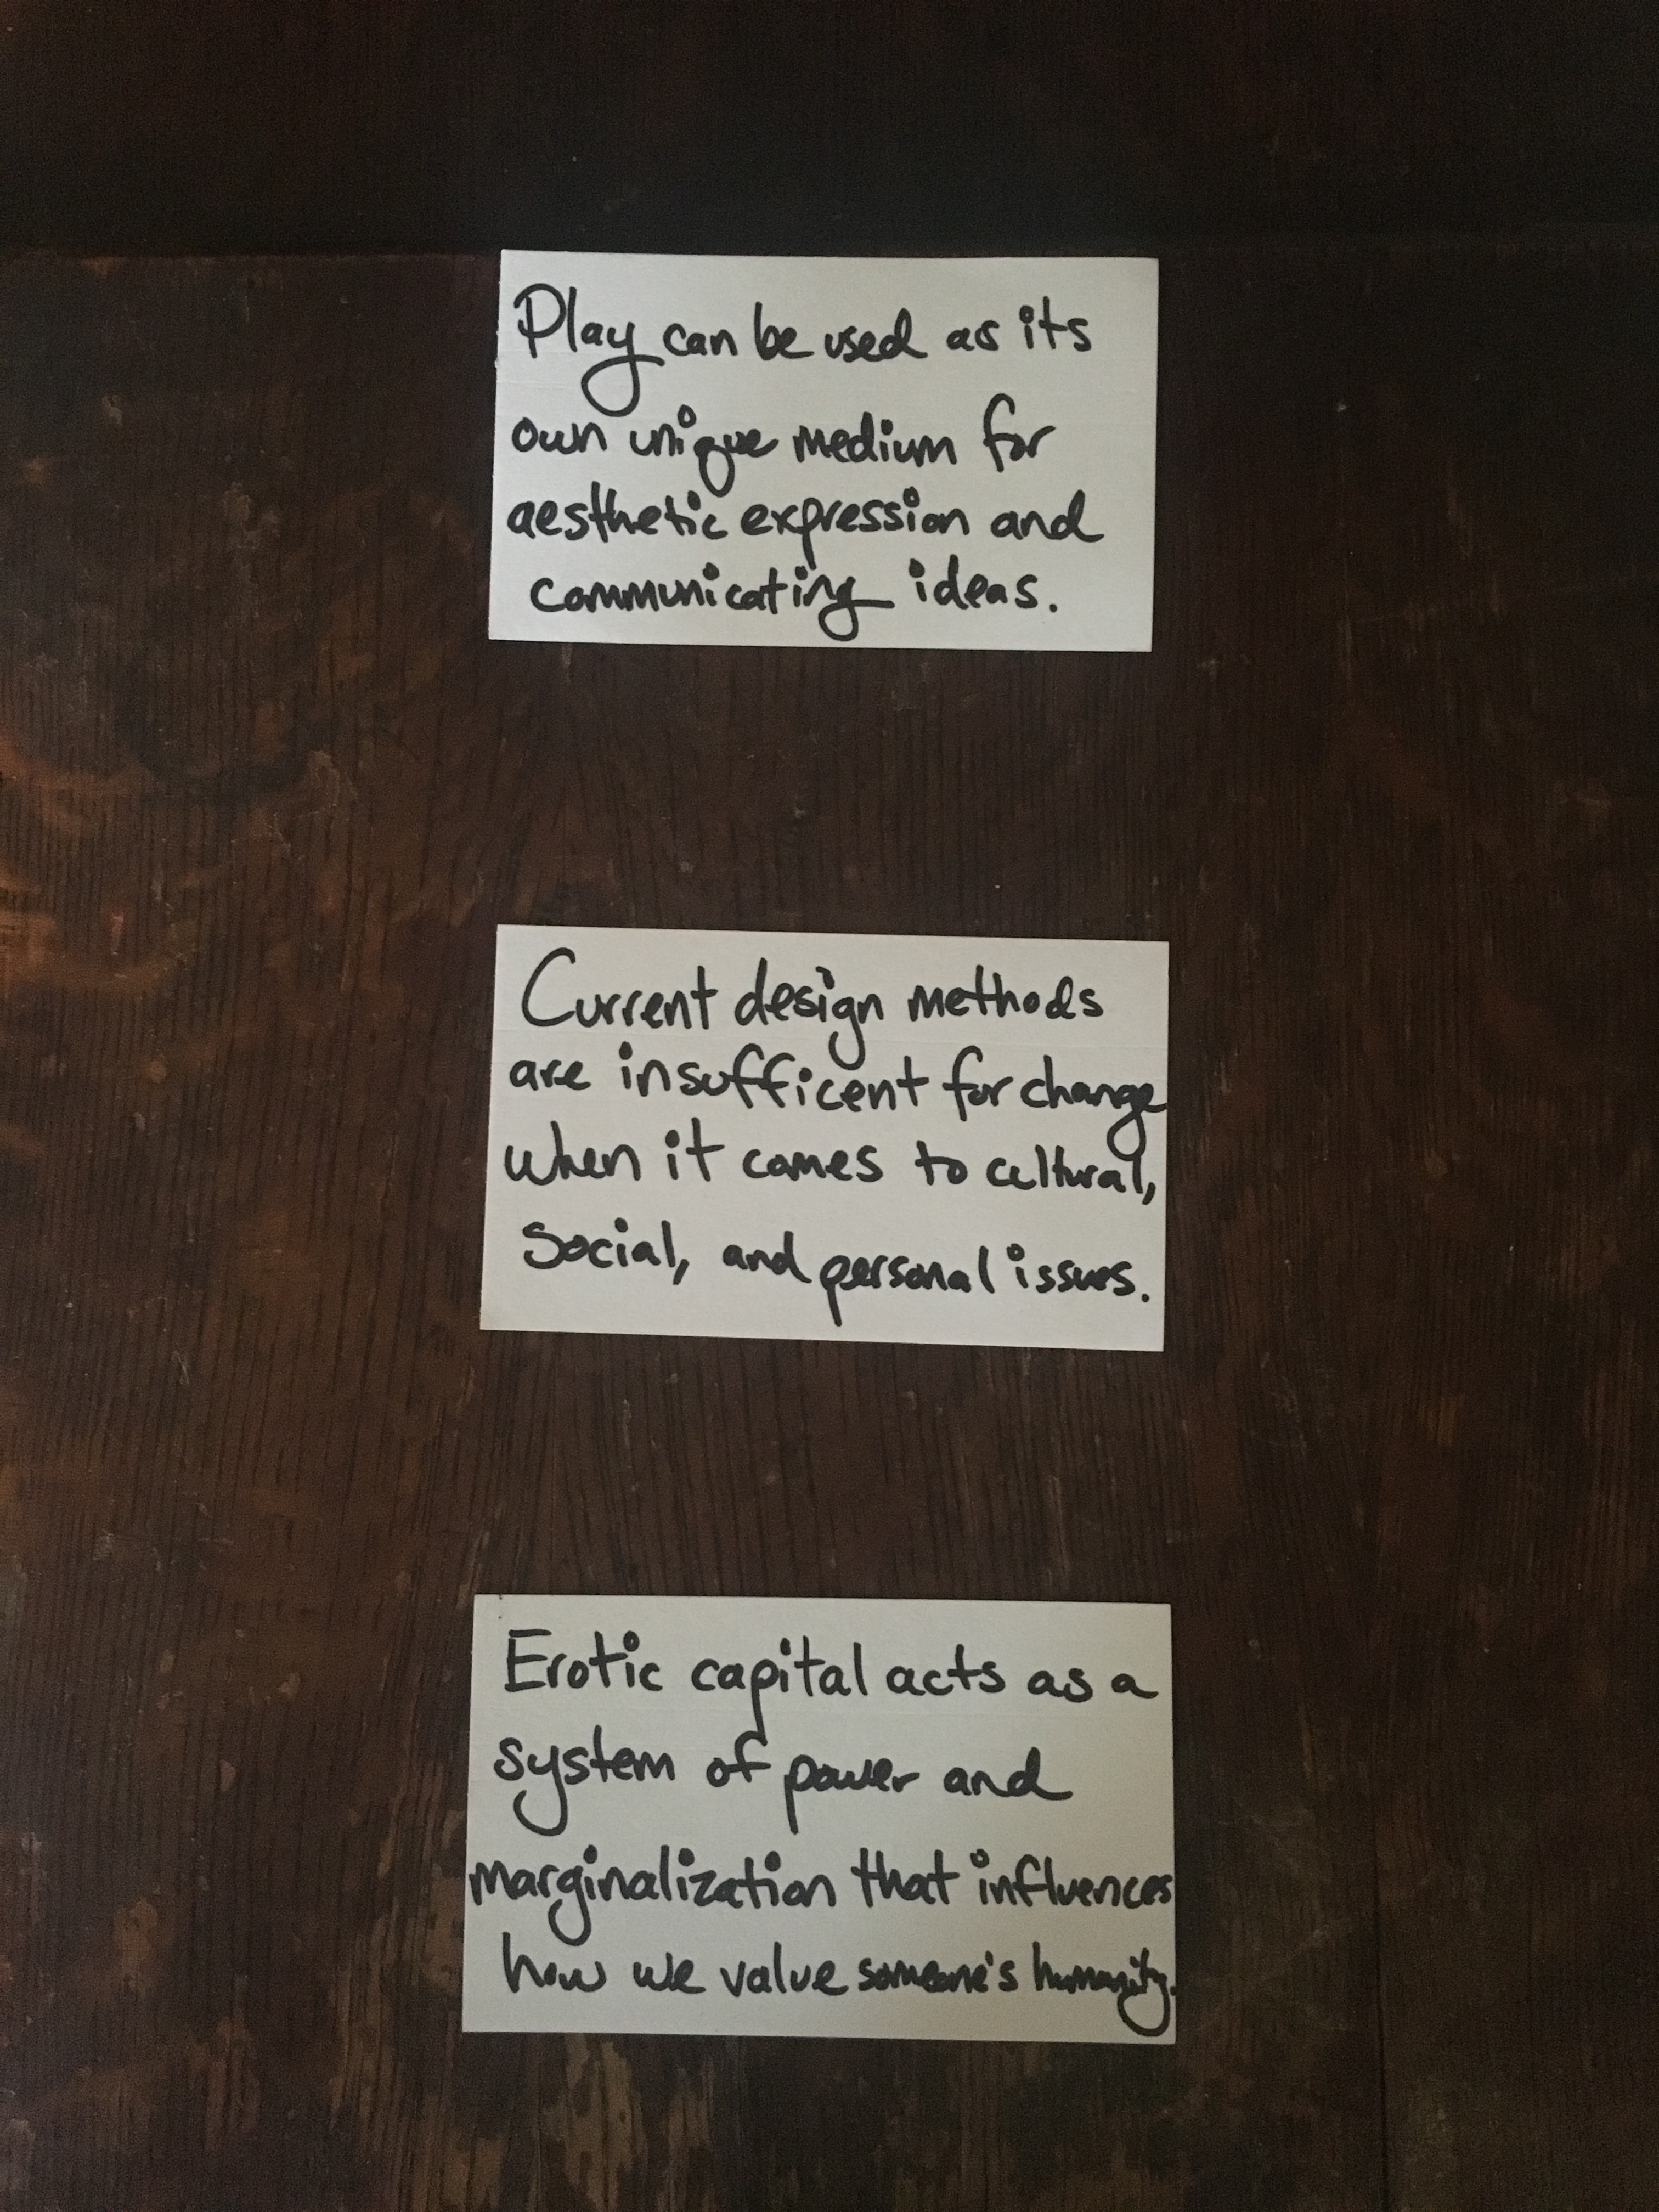 Play can be used as its
own unique medium for
aesthetic expression and
communicating ideas.
Current design methods
are insufficent for change
when it comes to cultural,
Social, and personal issues.
Erotic capital acts as a
system of power and
marginalization that influences
how we value someone's humanity.